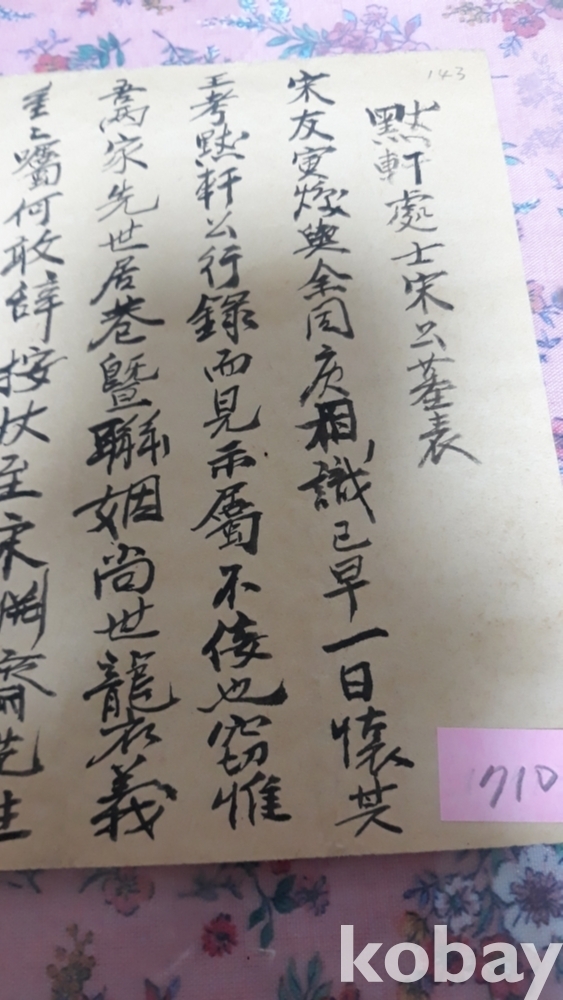 143
默軒處士宋公墓表
宋友寅燮與余同庚相識已早一日懷其
王考默軒公行錄而見示屬不佞也窃惟
吾家先世居巷曁聯姻尚世龍衣義
重之囑何敢辞按状至宋剛齋先生
1710
kobay